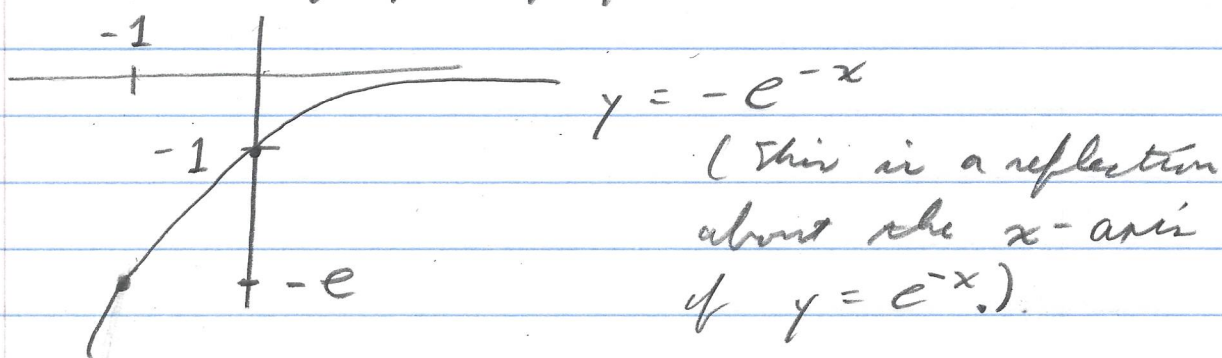 -1
y = -e^{-x}
-1
(This is a reflection
about the x-axis
-e
of y = e^{-x}.)